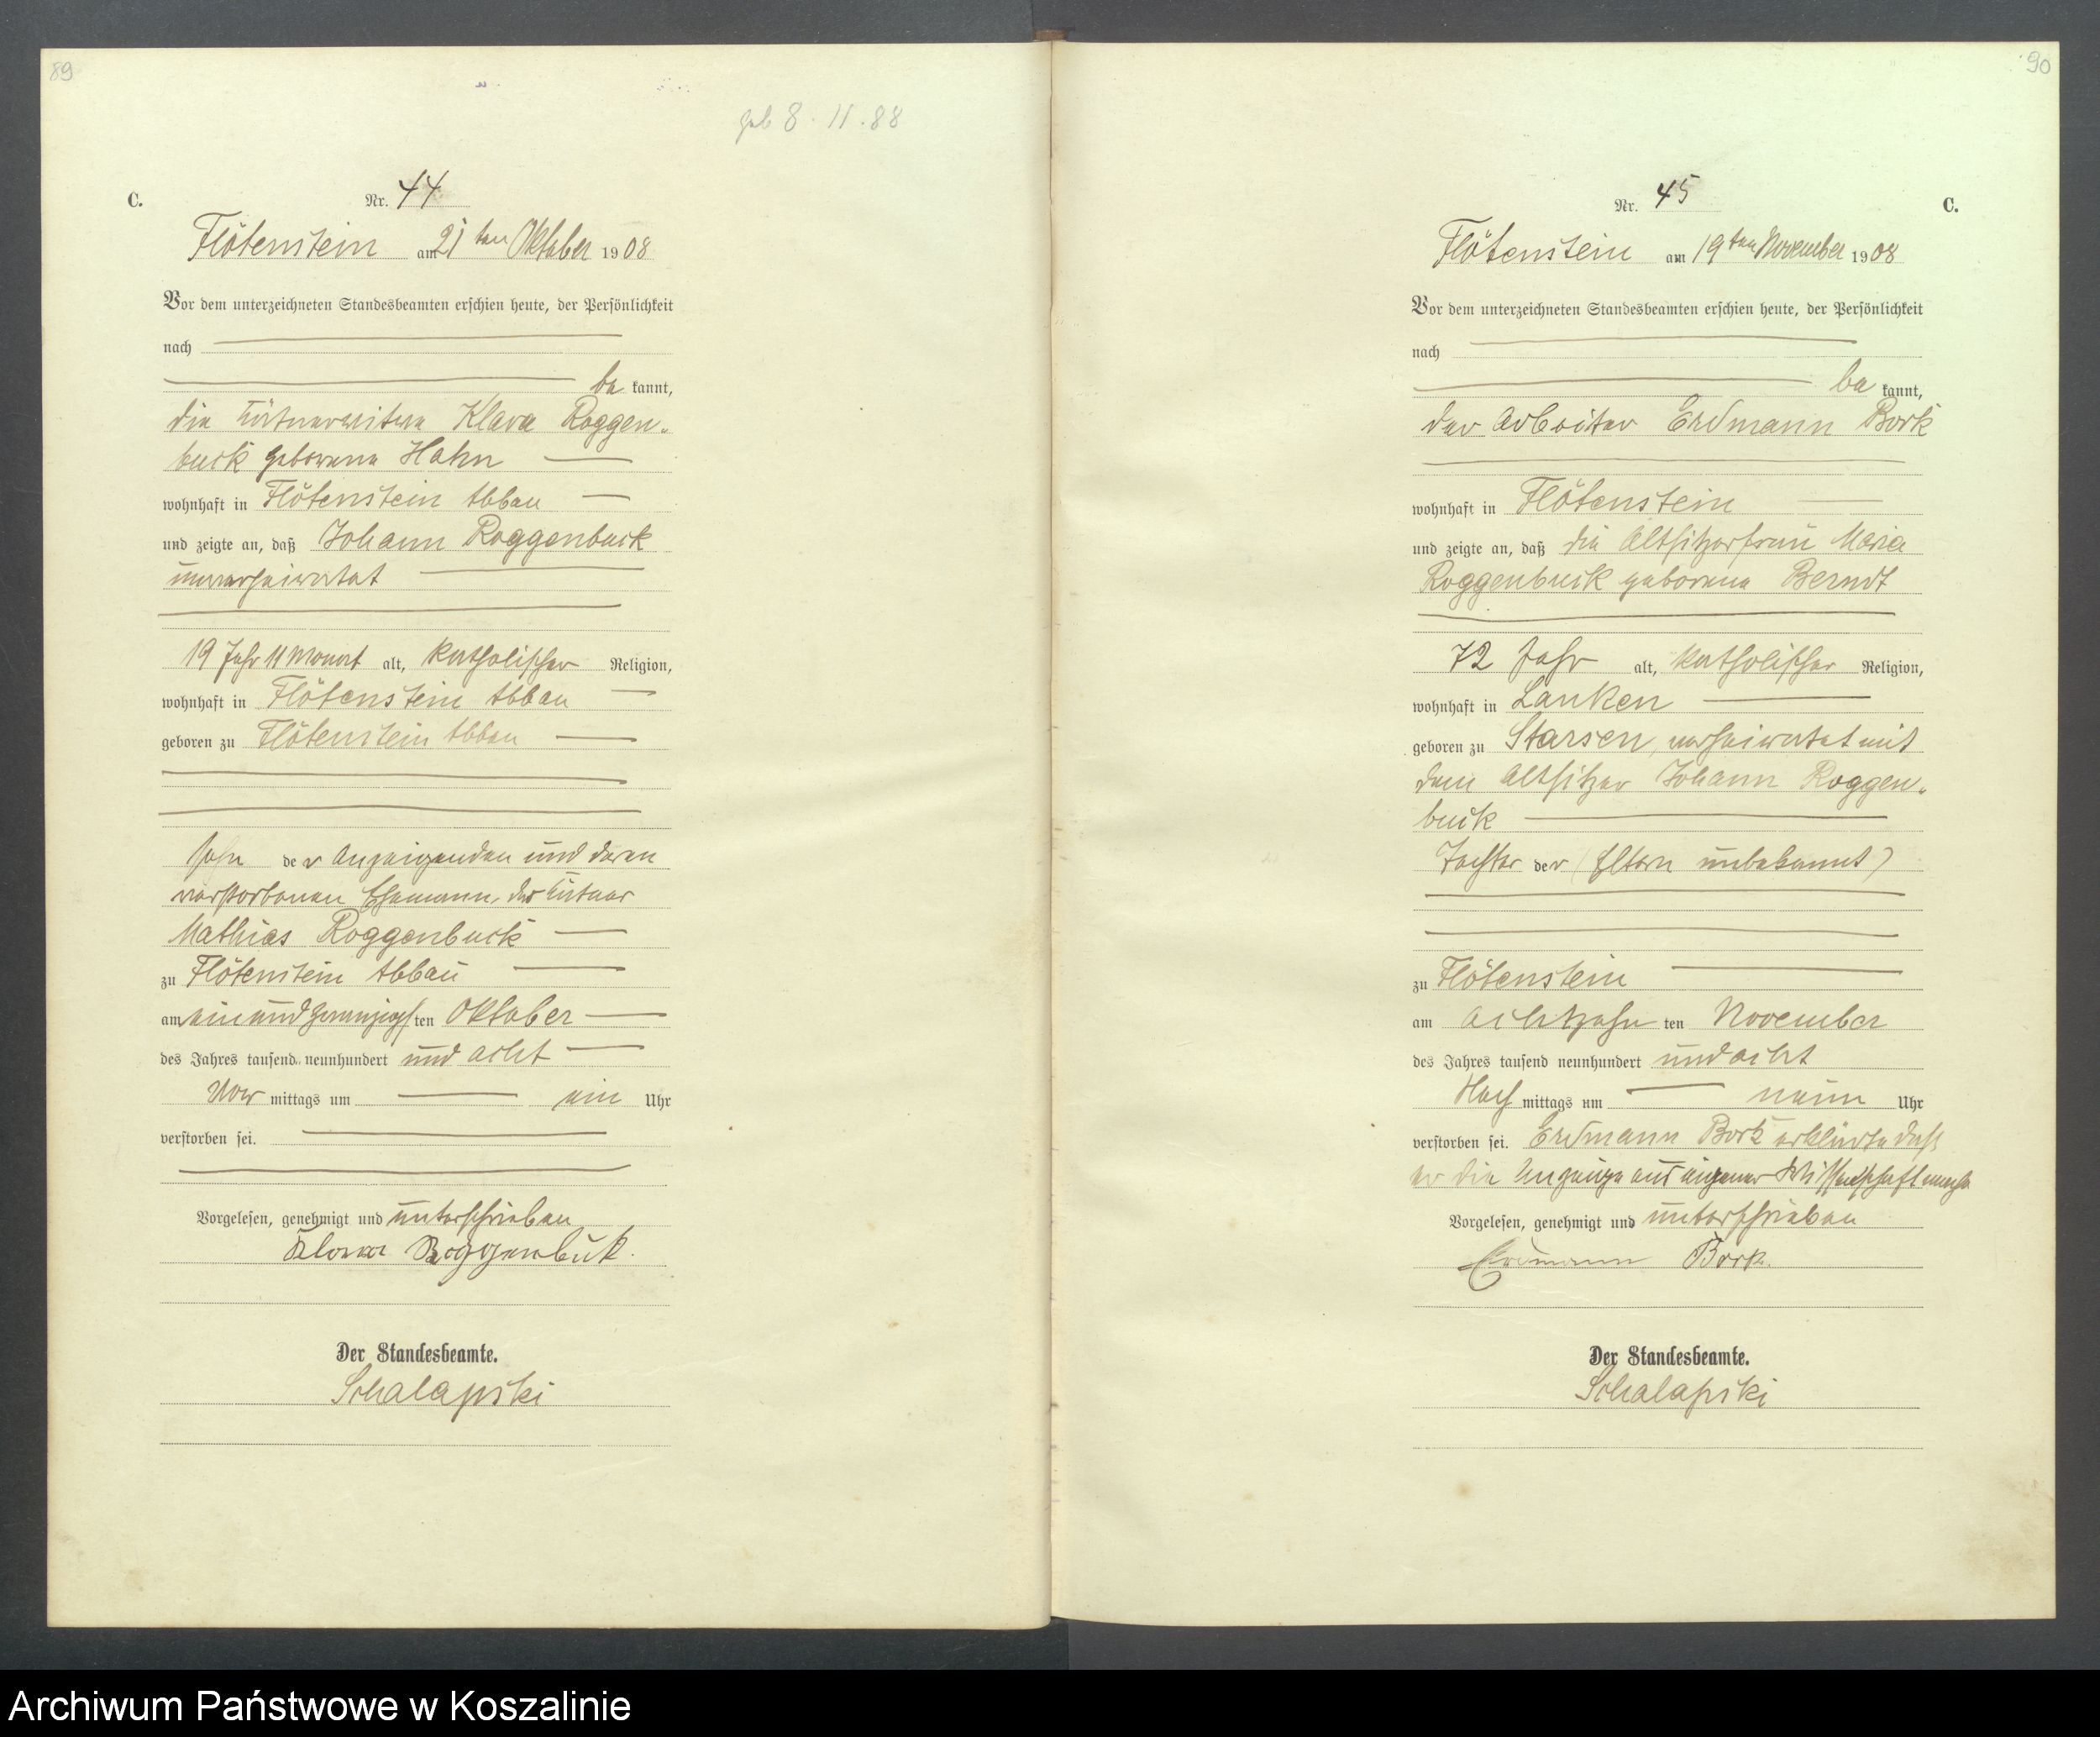 89
geb 8. 11. 88
C.
Nr. 44
Flötenstein am 21ten Oktober 1908
Vor dem unterzeichneten Standesbeamten erschien heute, der Persönlichkeit
nach
be kannt,
die Witwe Klara Roggen-
buck geborene Hahn
wohnhaft in Flötenstein Abbau
und zeigte an, daß Johann Roggenbuck
unverheiratet
19 Jahr 11 Monat alt, katholischer Religion,
wohnhaft in Flötenstein Abbau
geboren zu Flötenstein Abbau
Sohn der Anzeigenden und deren
verstorbenen Ehemann, der
Mathias Roggenbuck
zu Flötenstein Abbau
am einundzwanzigsten Oktober
des Jahres tausend neunhundert und acht
Vor mittags um ein Uhr
verstorben sei.
Vorgelesen, genehmigt und unterschrieben
Klara Roggenbuk.
Der Standesbeamte.
Schalapski
90
C.
Nr. 45
Flötenstein am 19ten November 1908
Vor dem unterzeichneten Standesbeamten erschien heute, der Persönlichkeit
nach
be kannt,
der Arbeiter Erdmann Bork
wohnhaft in Flötenstein
und zeigte an, daß die Altsitzerfrau Maria
Roggenbuck geborene Berndt
72 Jahr alt, katholischer Religion,
wohnhaft in Lanken
geboren zu Starsen, verheiratet mit
dem Altsitzer Johann Roggen-
buck
Tochter der (Eltern unbekannt)
zu Flötenstein
am achtzehn ten November
des Jahres tausend neunhundert und acht
Nach mittags um neun Uhr
verstorben sei. Erdmann Bork erklärte daß
er die Anzeige aus eigener Wissenschaft mache
Vorgelesen, genehmigt und unterschrieben
Erdmann Bork.
Der Standesbeamte.
Schalapski
Archiwum Państwowe w Koszalinie